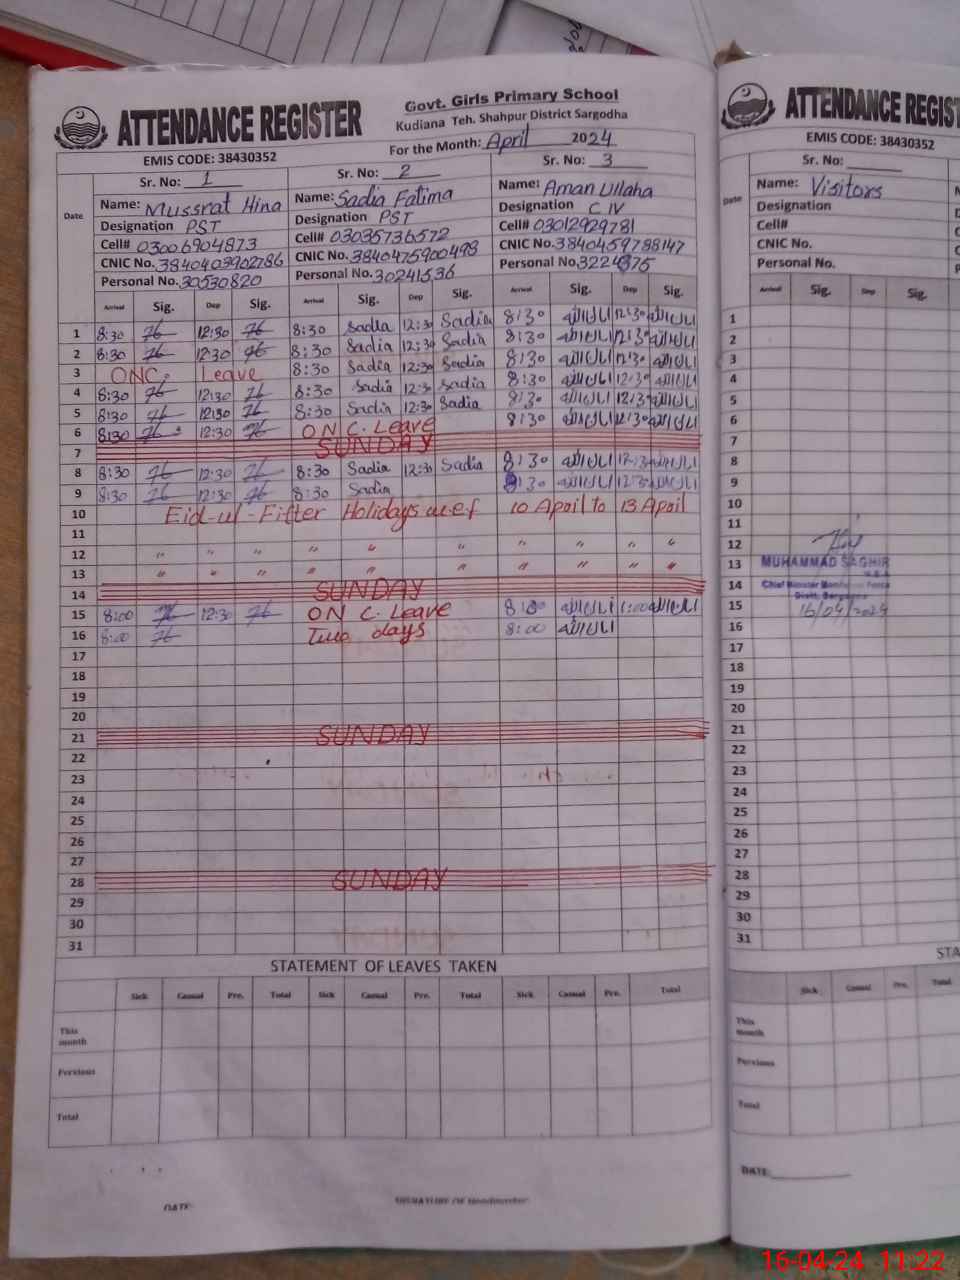 ATTENDANCE REGISTER
Govt. Girls Primary School
Kudiana Teh. Shahpur District Sargodha
EMIS CODE: 38430352
For the Month: April 2024
Sr. No: 1 Sr. No: 2 Sr. No: 3
Date
Name: Mussrat Hina Name: Sadia Fatima Name: Aman Ullaha
Designation PST Designation PST Designation C IV
Cell# 03006904873 Cell# 03035736572 Cell# 03012929781
CNIC No. 3840403902786 CNIC No. 3840475900498 CNIC No. 3840459788147
Personal No. 30530820 Personal No. 30241536 Personal No. 3224375
Arrival Sig. Dep Sig. Arrival Sig. Dep Sig. Arrival Sig. Dep Sig.
1 8:30 12:30 8:30 Sadia 12:30 Sadia 8:30 12:30
2 8:30 12:30 8:30 Sadia 12:30 Sadia 8:30 12:30
3 ON C. Leave 8:30 Sadia 12:30 Sadia 8:30 12:30
4 8:30 12:30 8:30 Sadia 12:30 Sadia 8:30 12:30
5 8:30 12:30 8:30 Sadia 12:30 Sadia 8:30 12:30
6 8:30 12:30 ON C. Leave 8:30 12:30
7 SUNDAY
8 8:30 12:30 8:30 Sadia 12:30 Sadia 8:30 12:30
9 8:30 12:30 8:30 Sadia 8:30 12:30
10 Eid-ul-Fitter Holidays w.e.f 10 April to 13 April
11
12 " " " " " " " " " "
13 " " " " " " " " " "
14 SUNDAY
15 8:00 12:30 ON C. Leave 8:00 1:00
16 8:00 Two days 8:00
17
18
19
20
21 SUNDAY
22
23
24
25
26
27
28 SUNDAY
29
30
31
STATEMENT OF LEAVES TAKEN
Sick Casual Pre. Total Sick Casual Pre. Total Sick Casual Pre. Total
This month
Pervious
Total
DATE:
SIGNATURE OF Headmaster
ATTENDANCE REGIST
EMIS CODE: 38430352
Sr. No:
Date
Name: Visitors
Designation
Cell#
CNIC No.
Personal No.
Arrival Sig. Dep Sig.
1
2
3
4
5
6
7
8
9
10
11
12
13 MUHAMMAD SAGHIR
14 Chief Minister Monitoring Force
Distt. Sargodha
15 16/04/2024
16
17
18
19
20
21
22
23
24
25
26
27
28
29
30
31
STA
Sick Casual Pre. Total
This month
Pervious
Total
DATE:
16-04-24 11:22